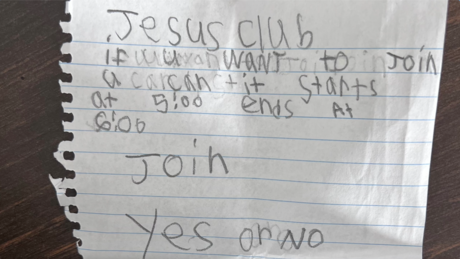 Jesus club
if want to Join
u can it starts
at 5:00 ends At
6:00
Join
Yes or No